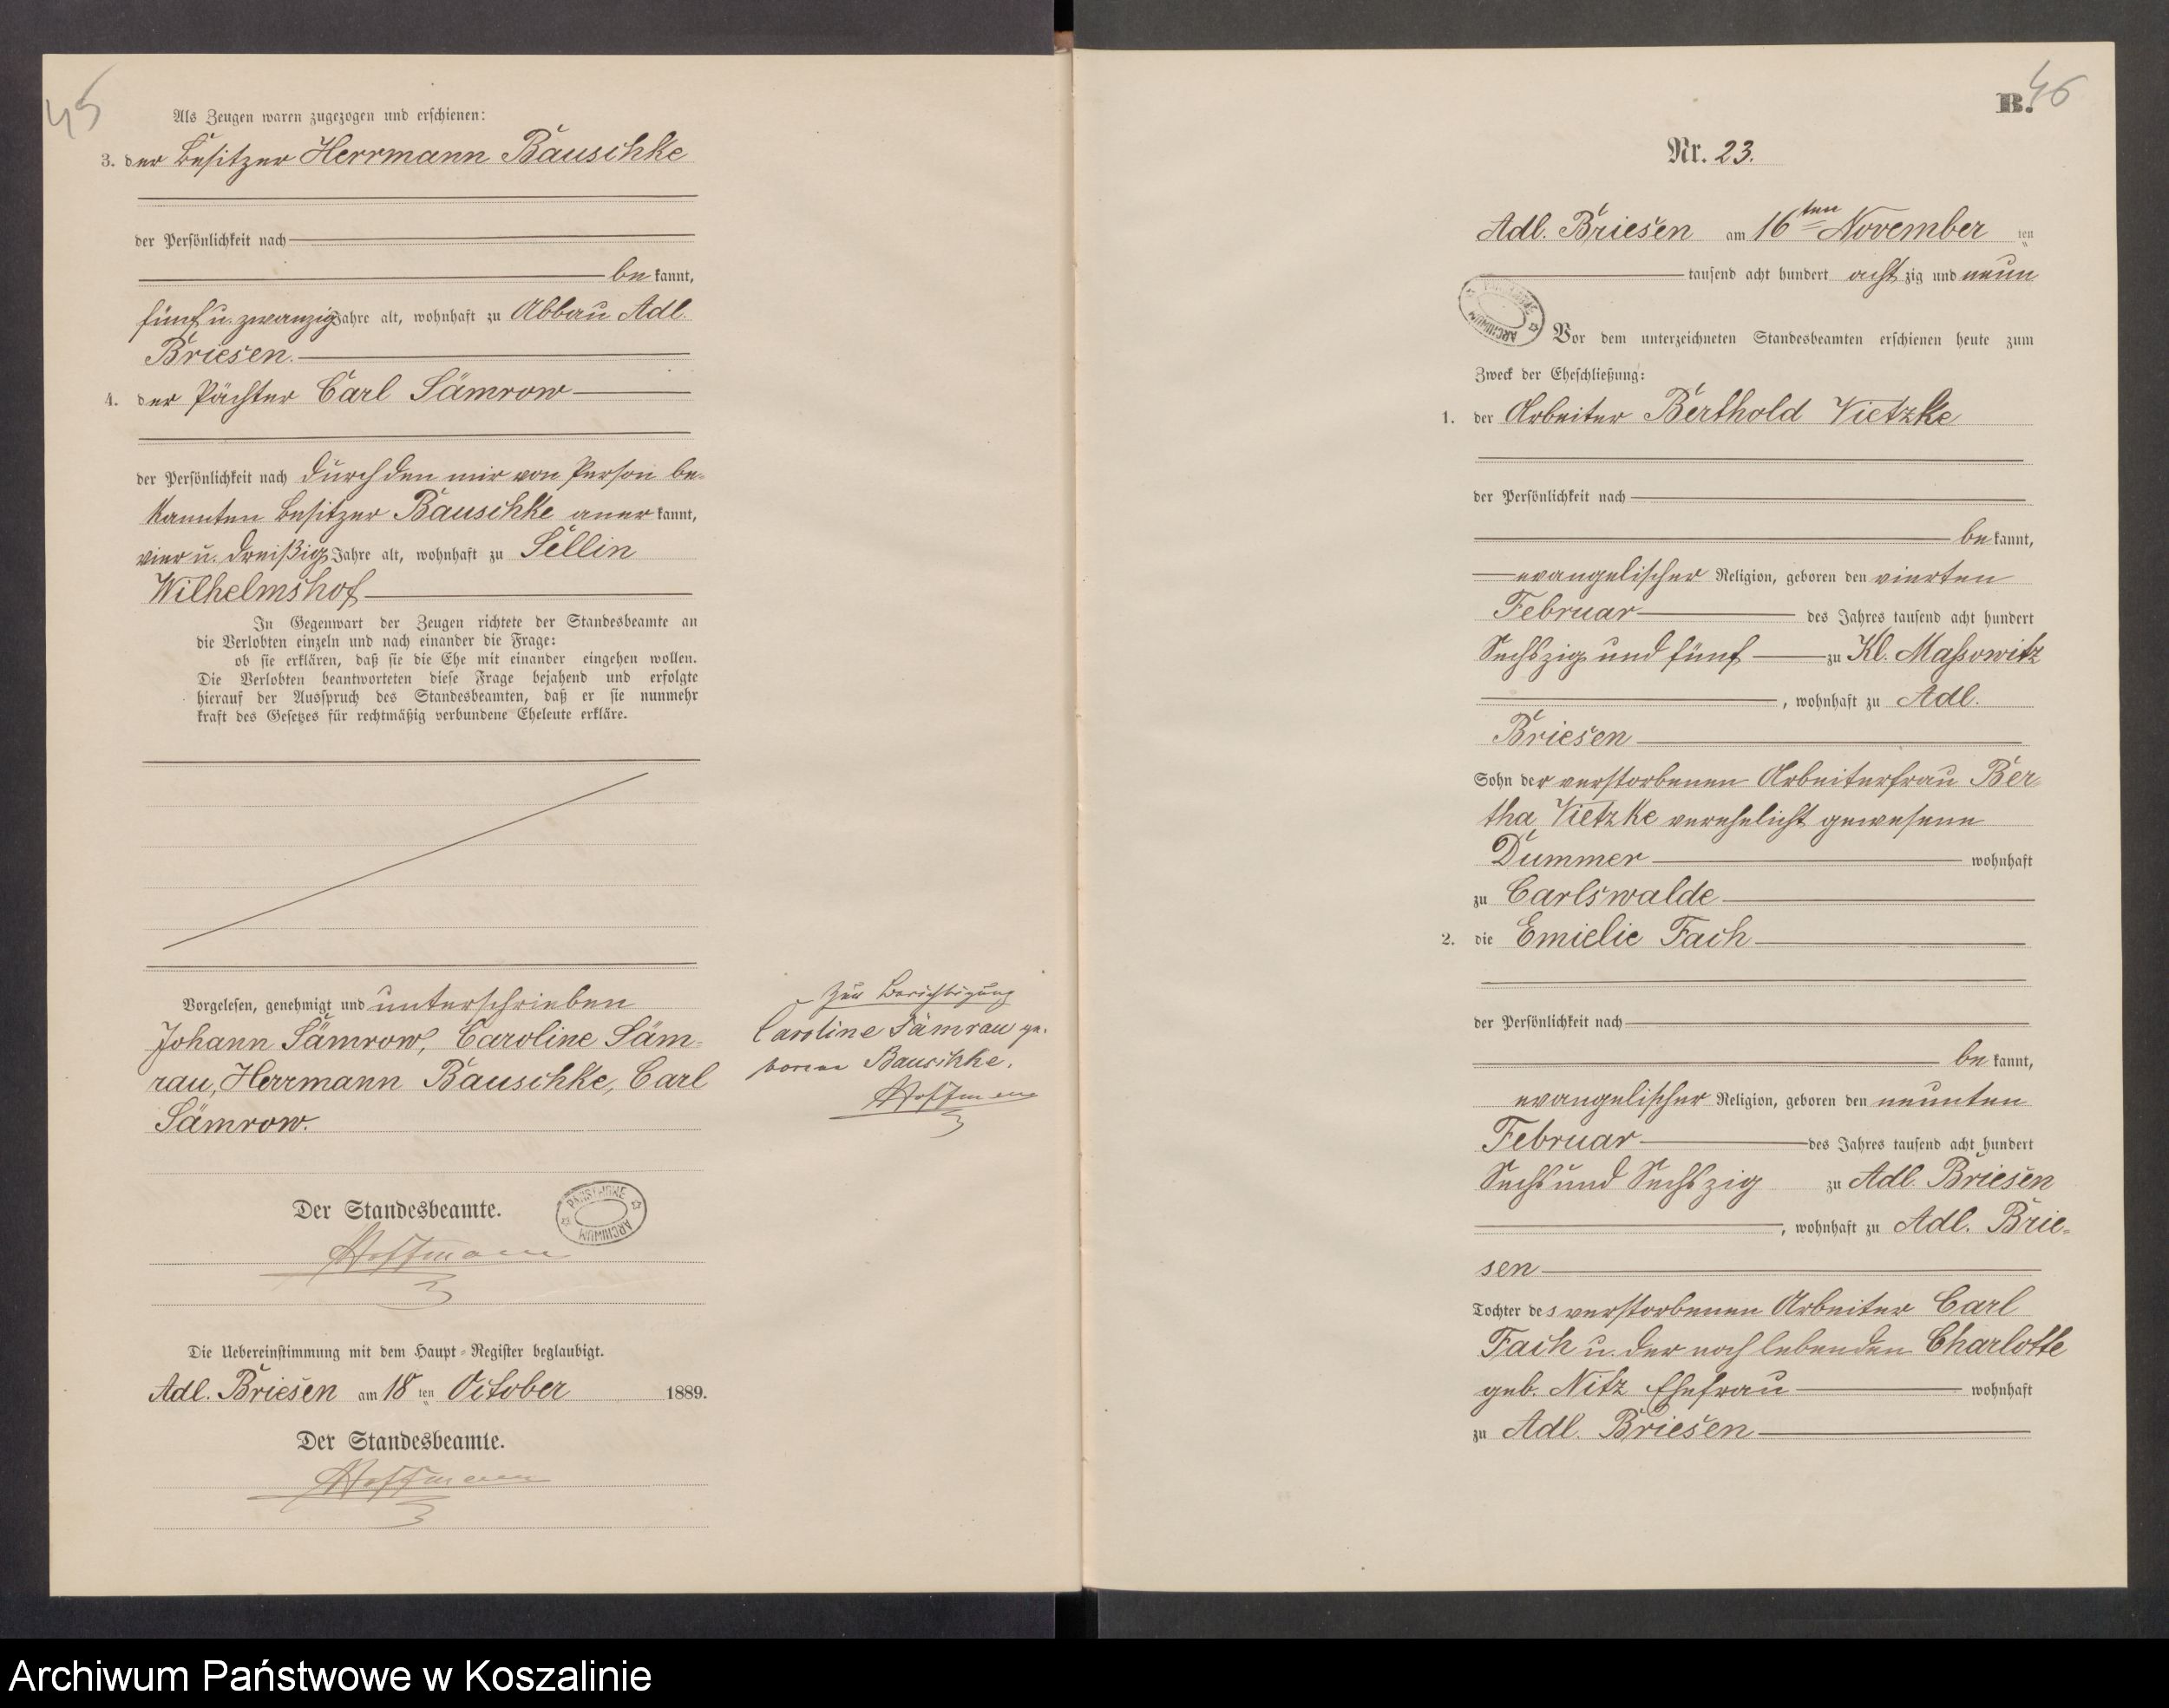 45
Als Zeugen waren zugezogen und erschienen:
3. der Besitzer Herrmann Bauschke
der Persönlichkeit nach
be kannt,
fünf u. zwanzig Jahre alt, wohnhaft zu Abbau Adl.
Briesen.
4. der Pächter Carl Sämrow
der Persönlichkeit nach durch den mir von Person be-
kannten Besitzer Bauschke aner kannt,
vier u. dreißig Jahre alt, wohnhaft zu Sellin
Wilhelmshof
In Gegenwart der Zeugen richtete der Standesbeamte an
die Verlobten einzeln und nach einander die Frage:
ob sie erklären, daß sie die Ehe mit einander eingehen wollen.
Die Verlobten beantworteten diese Frage bejahend und erfolgte
hierauf der Ausspruch des Standesbeamten, daß er sie nunmehr
kraft des Gesetzes für rechtmäßig verbundene Eheleute erkläre.
Vorgelesen, genehmigt und unterschrieben
Johann Sämrow, Caroline Säm-
rau, Herrmann Bauschke, Carl
Sämrow.
Zur Berichtigung
Caroline Sämrau ge-
borene Bauschke.
Hoffmann
Der Standesbeamte.
PAŃSTWOWE ARCHIWUM
Hoffmann
Die Uebereinstimmung mit dem Haupt-Register beglaubigt.
Adl. Briesen am 18 ten October 1889.
Der Standesbeamte.
Hoffmann
B. 46
Nr. 23.
Adl. Briesen am 16ten November ten
tausend acht hundert acht zig und neun
ARCHIWUM
Vor dem unterzeichneten Standesbeamten erschienen heute zum
Zweck der Eheschließung:
1. der Arbeiter Berthold Vietzke
der Persönlichkeit nach
be kannt,
evangelischer Religion, geboren den vierten
Februar des Jahres tausend acht hundert
Sechszig und fünf zu Kl. Massowitz
, wohnhaft zu Adl.
Briesen
Sohn der verstorbenen Arbeiterfrau Ber-
tha Vietzke verehelicht gewesene
Dummer wohnhaft
zu Carlswalde
2. die Emielie Fach
der Persönlichkeit nach
be kannt,
evangelischer Religion, geboren den neunten
Februar des Jahres tausend acht hundert
Sechs und Sechszig zu Adl. Briesen
, wohnhaft zu Adl. Brie-
sen
Tochter des verstorbenen Arbeiter Carl
Fach u. der noch lebenden Charlotte
geb. Nitz Ehefrau wohnhaft
zu Adl. Briesen
Archiwum Państwowe w Koszalinie